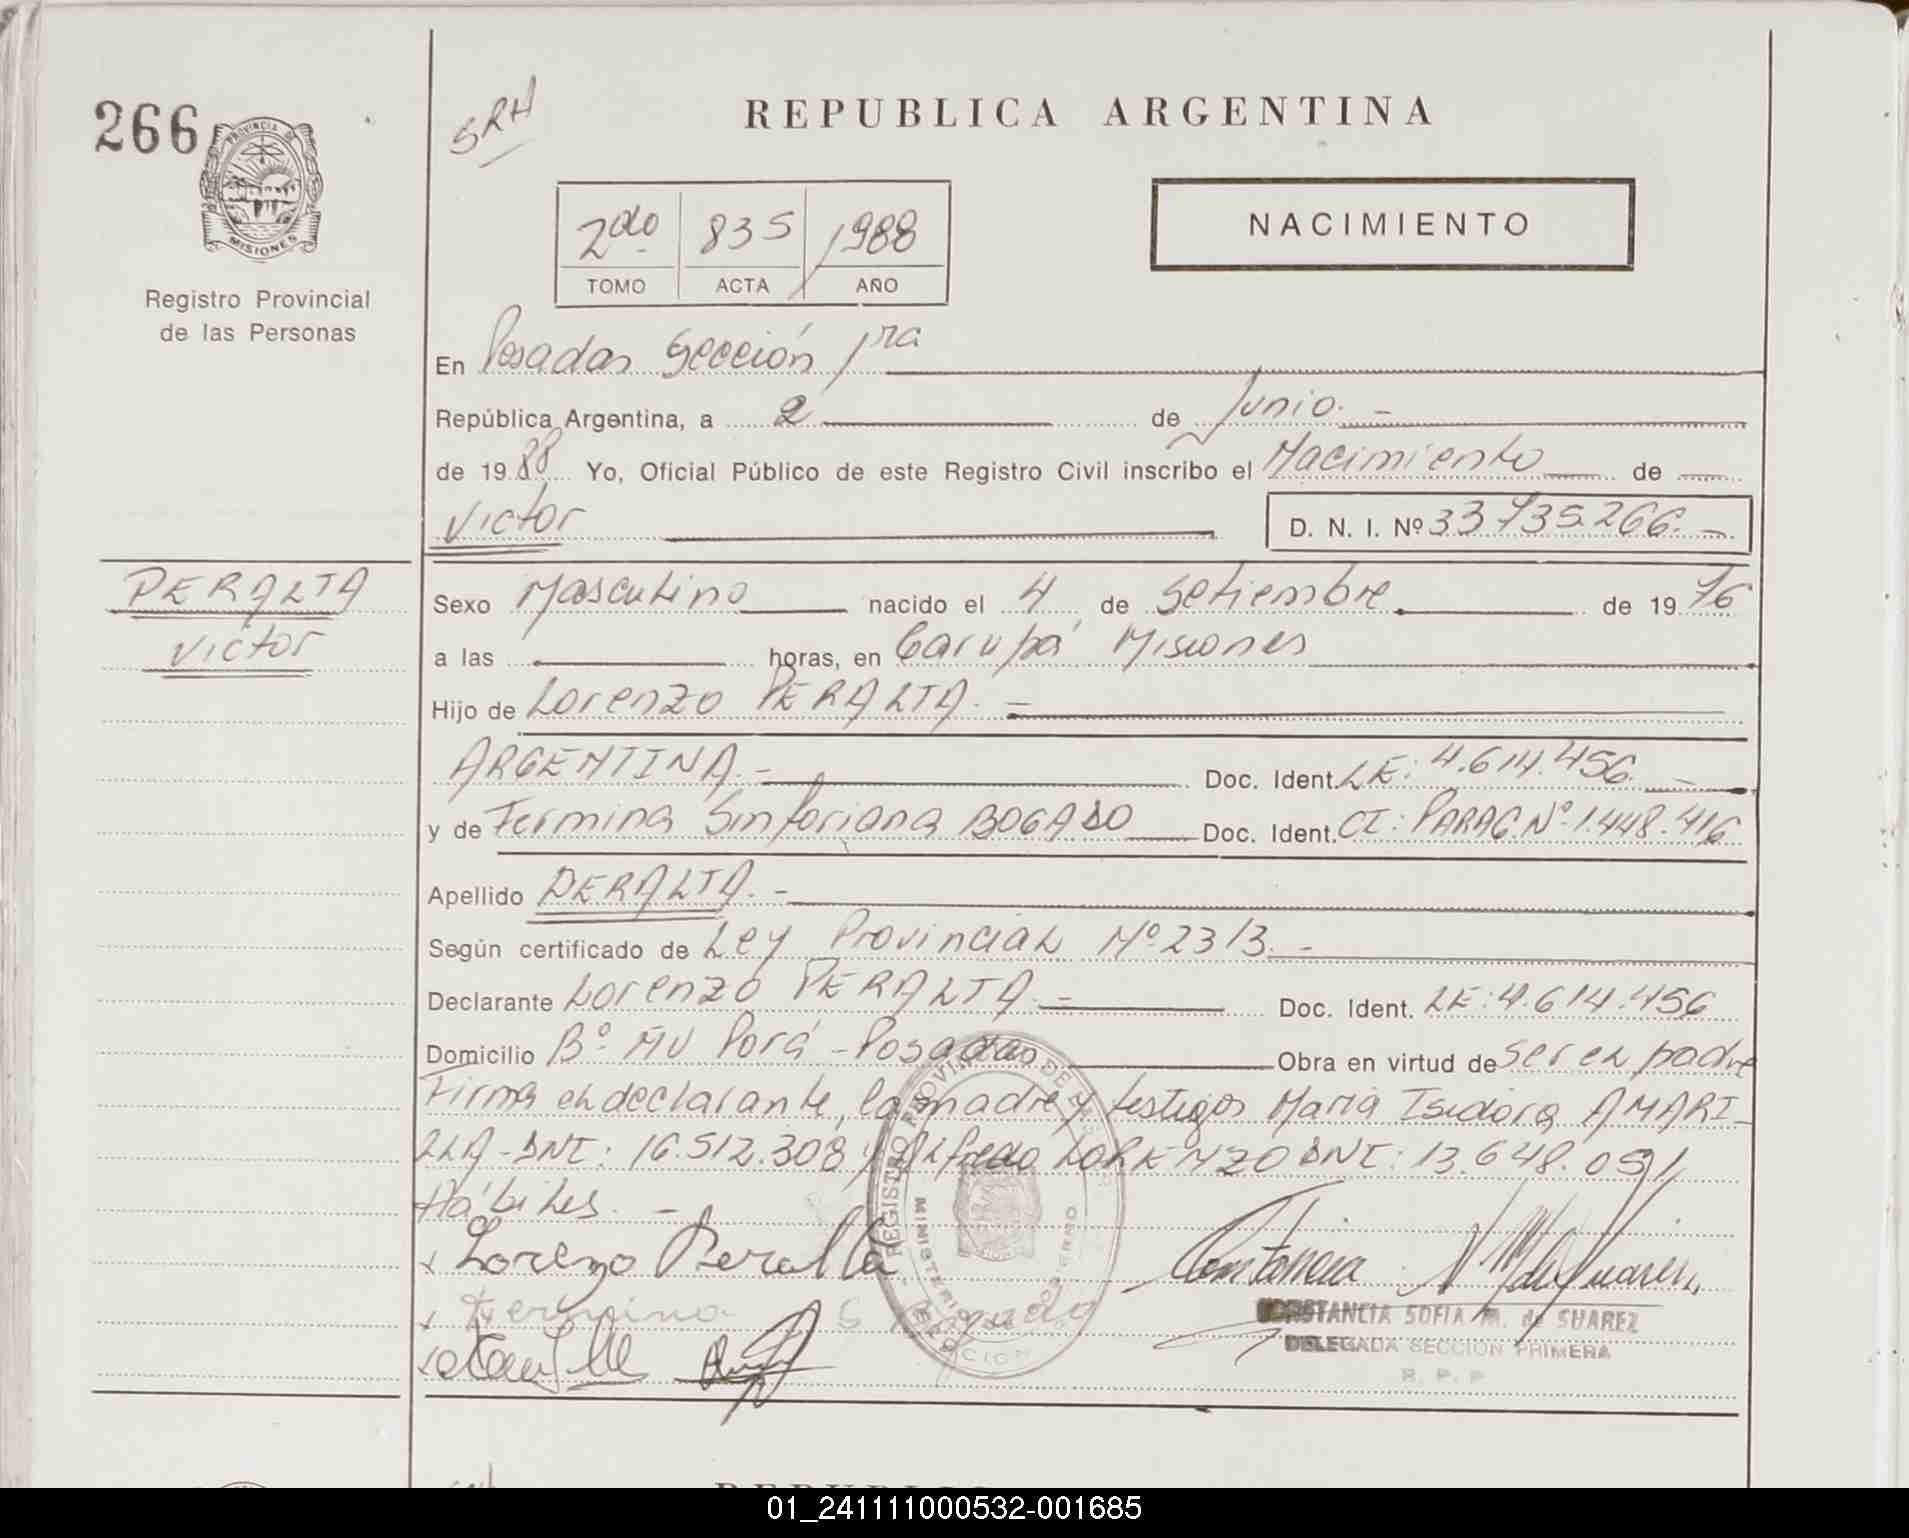 266
PROVINCIA DE
MISIONES
Registro Provincial
de las Personas
PERALTA
Victor
SRH
REPUBLICA ARGENTINA
2do 835 1988
TOMO ACTA AÑO
NACIMIENTO
En Posadas Sección 1ra
República Argentina, a 2 de Junio.-
de 1988 Yo, Oficial Público de este Registro Civil inscribo el Nacimiento de
Victor D. N. I. Nº 33.735.266.-
Sexo Masculino nacido el 4 de Setiembre de 1976
a las horas, en Garupá Misiones
Hijo de Lorenzo PERALTA.-
ARGENTINA.- Doc. Ident. LE: 4.614.456.-
y de Fermina Sinforiana BOGADO Doc. Ident. CI: PARAG. Nº 1.448.416
Apellido PERALTA.-
Según certificado de Ley Provincial Nº 2313.-
Declarante Lorenzo PERALTA.- Doc. Ident. LE: 4.614.456
Domicilio Bº ÑU Porá - Posadas Obra en virtud de ser el padre
Firma el declarante, la madre y testigos Maria Isidora AMARI-
LLA - DNI: 16.512.308 y Alfredo LORENZO DNI: 13.648.091
Hábiles.-
x Lorenzo Peralta
x Fermina S Bogado
CONSTANCIA SOFIA M. de SUAREZ
DELEGADA SECCION PRIMERA
R. P. P
01_241111000532-001685